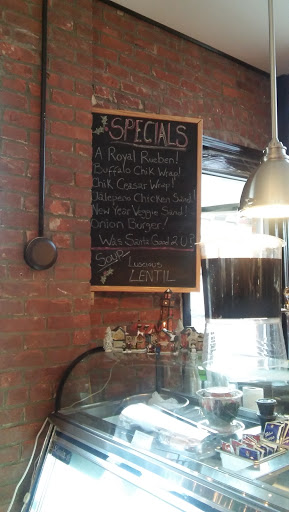 SPECIALS
A Royal Rueben!
Buffalo Chik Wrap!
Chik Caesar Wrap!
Jalepeno Chicken Sand!
New Year Veggie Sand!
Onion Burger!
Was Santa Good 2 U?
Soup
Luscious
LENTIL